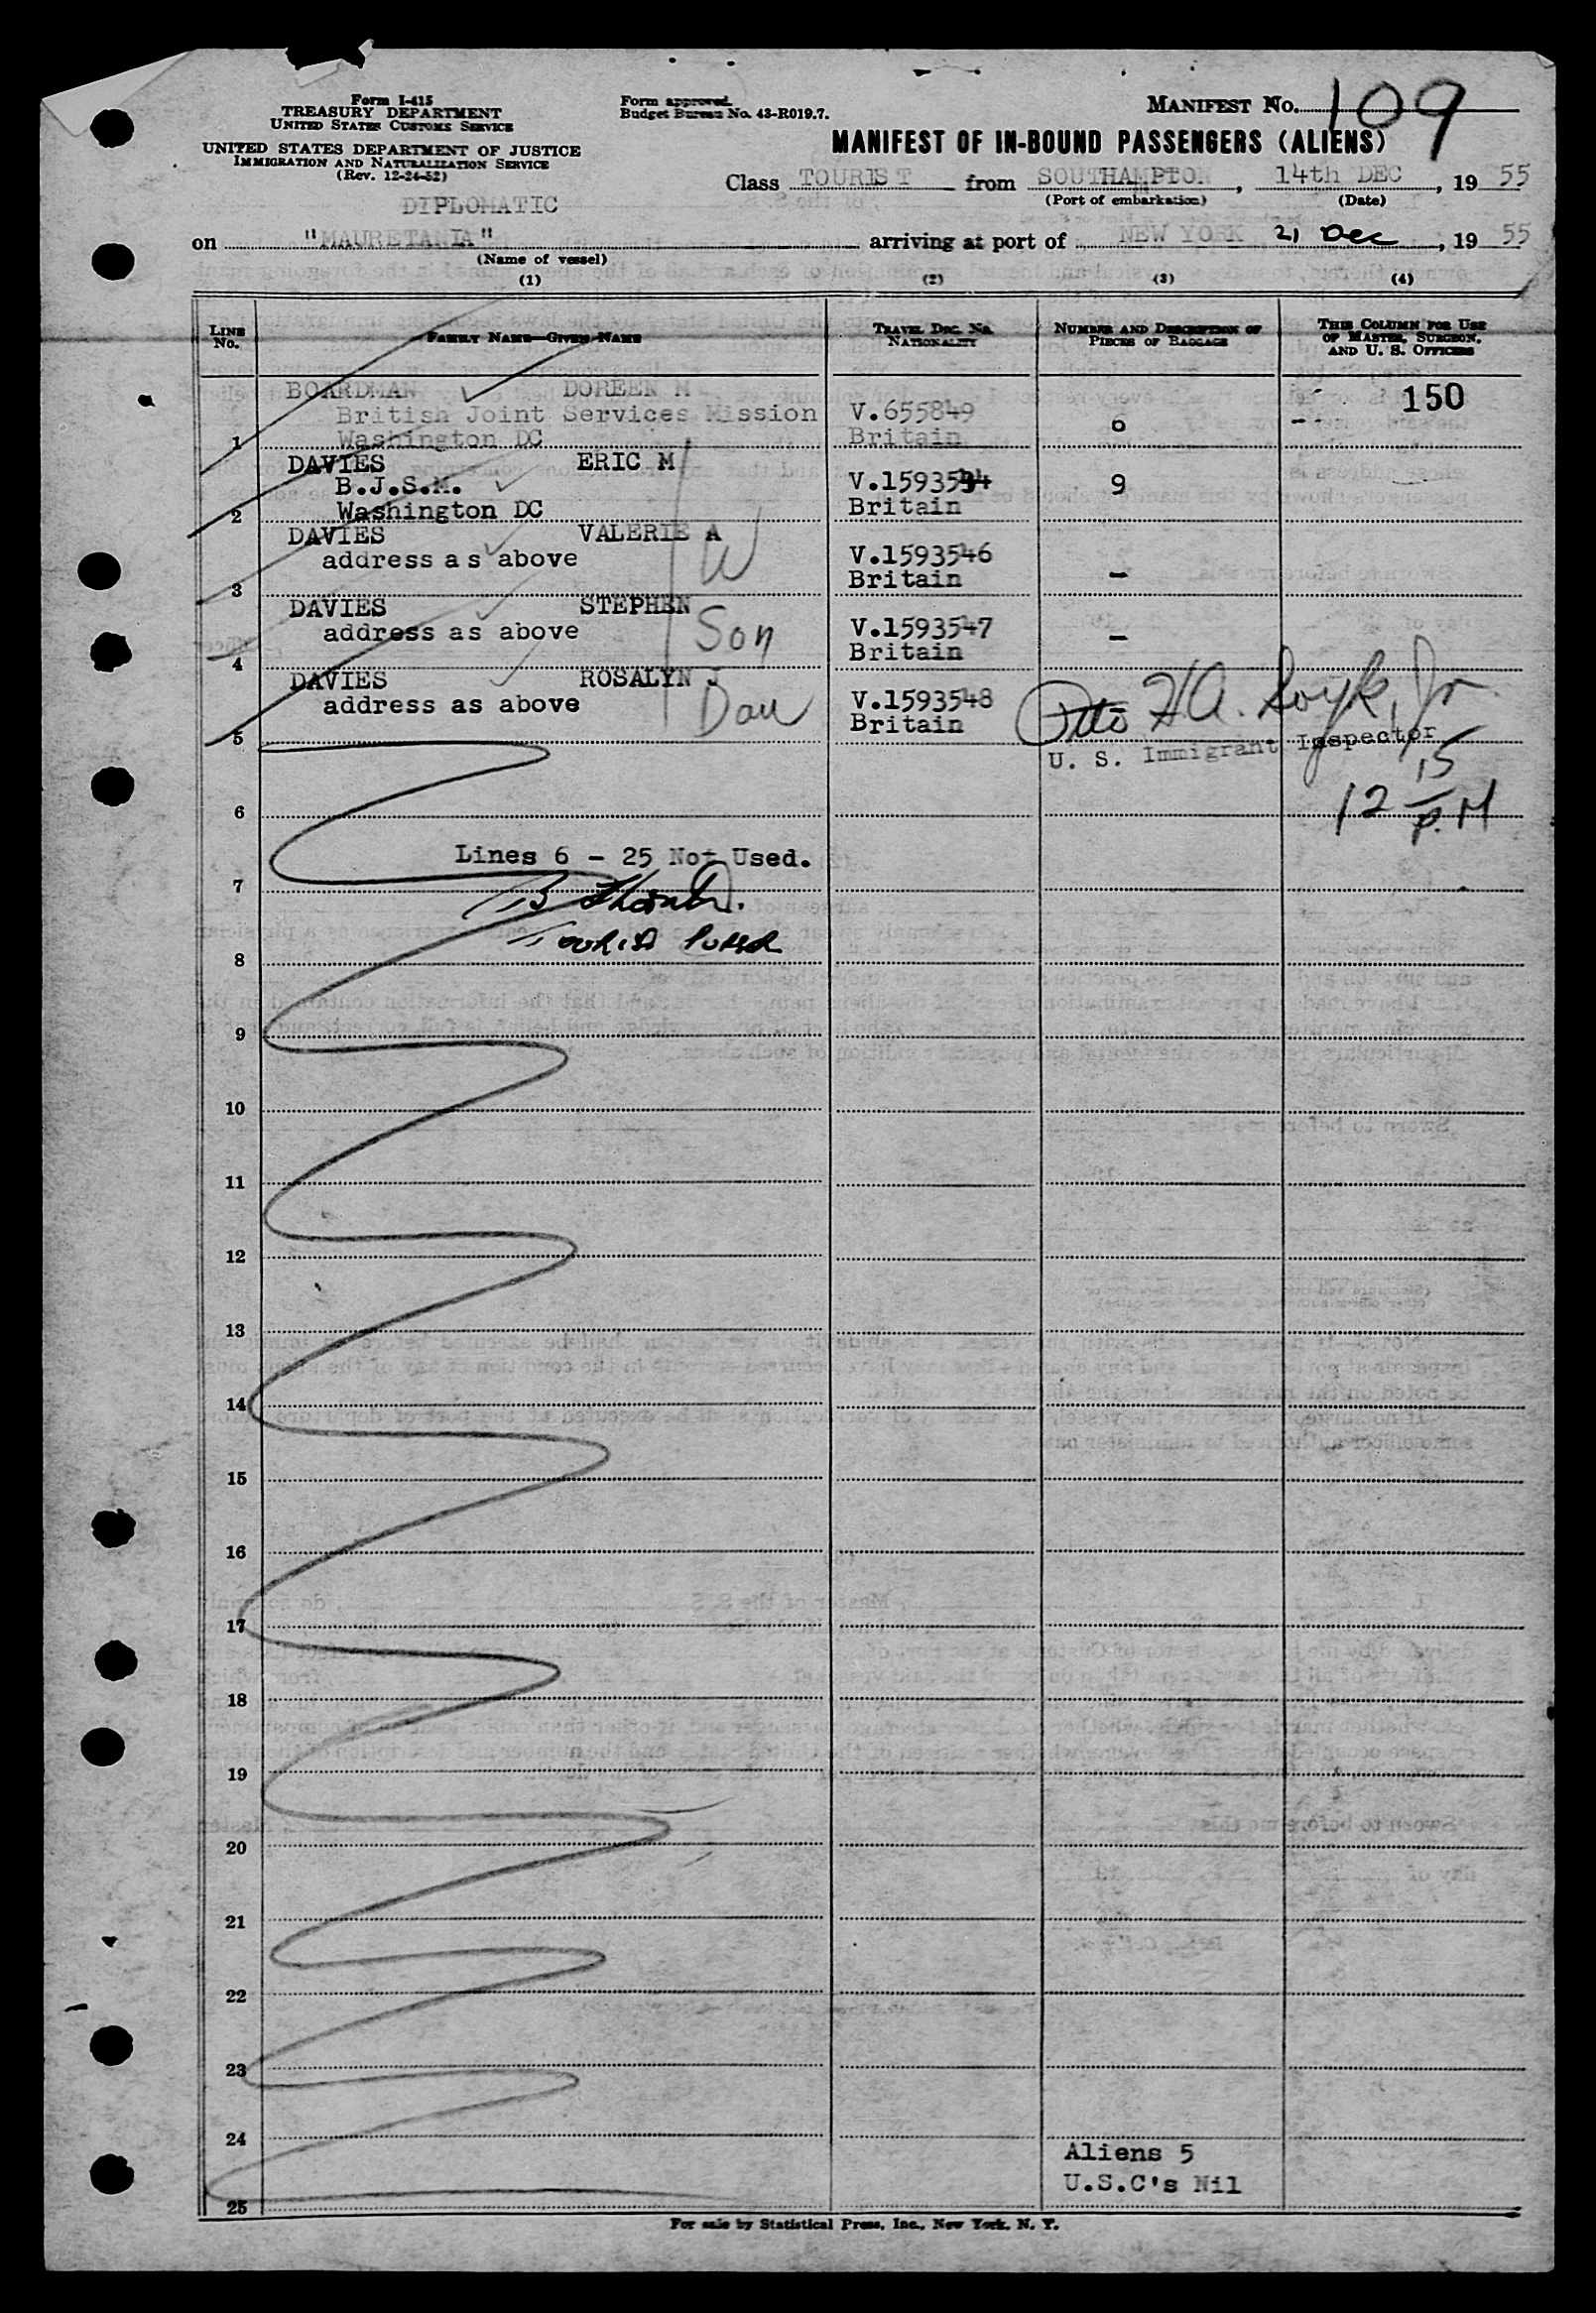 Form I-415
TREASURY DEPARTMENT
UNITED STATES CUSTOMS SERVICE
UNITED STATES DEPARTMENT OF JUSTICE
IMMIGRATION AND NATURALIZATION SERVICE
(Rev. 12-24-52)
Form approved.
Budget Bureau No. 43-R019.7.
MANIFEST NO. 109
MANIFEST OF IN-BOUND PASSENGERS (ALIENS)
Class TOURIST from SOUTHAMPTON, 14th DEC, 19 55
(Port of embarkation) (Date)
DIPLOMATIC
on "MAURETANIA" arriving at port of NEW YORK 21 Dec, 19 55
(Name of vessel)
(1) (2) (3) (4)
LINE NO. FAMILY NAME—GIVEN NAME TRAVEL DOC. NO. NATIONALITY NUMBER AND DESCRIPTION OF PIECES OF BAGGAGE THIS COLUMN FOR USE OF MASTER, SURGEON, AND U. S. OFFICERS
BOARDMAN DOREEN M 150
British Joint Services Mission V.655849 6 -
1 Washington DC Britain
DAVIES ERIC M
B.J.S.M. V.1593544 9
2 Washington DC Britain
DAVIES VALERIE A W
address as above V.1593546
3 Britain -
DAVIES STEPHEN Son
address as above V.1593547 -
4 Britain
DAVIES ROSALYN J Dau
address as above V.1593548 -
5 Britain
Otto H A. Jr.
U. S. Immigrant Inspector
12 15 P.M
6
Lines 6 - 25 Not Used.
7
B
Tourist Purser
8
9
10
11
12
13
14
15
16
17
18
19
20
21
22
23
24
Aliens 5
U.S.C's Nil
25
For sale by Statistical Press, Inc., New York, N. Y.